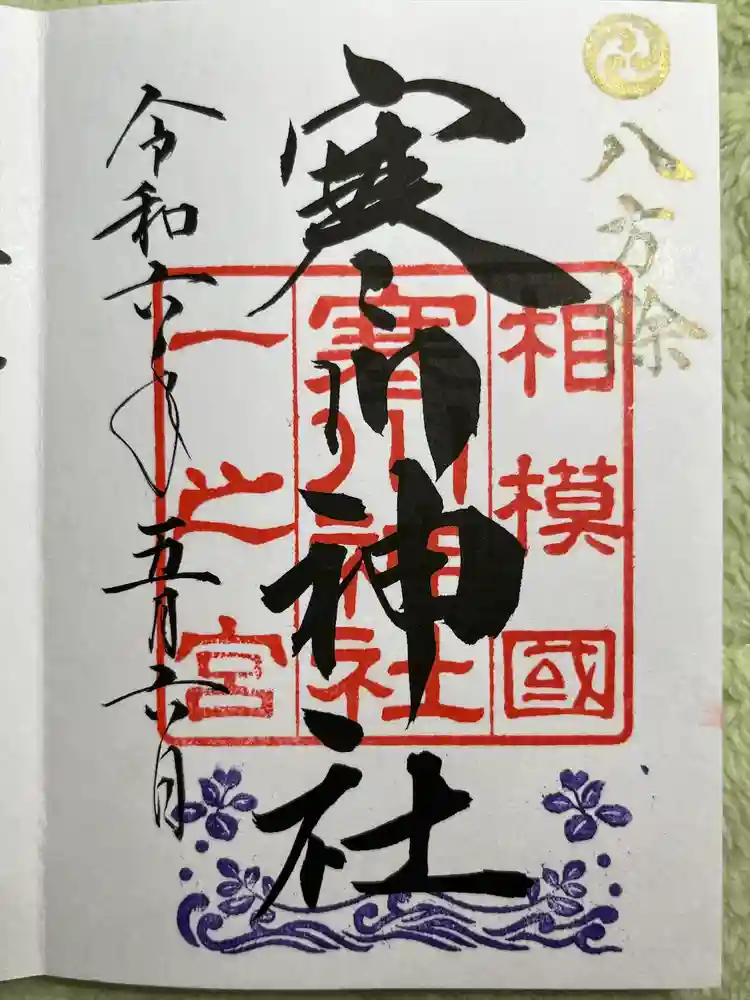 八方除
寒川神社
相模國
寒川神社
一之宮
令和六年五月六日